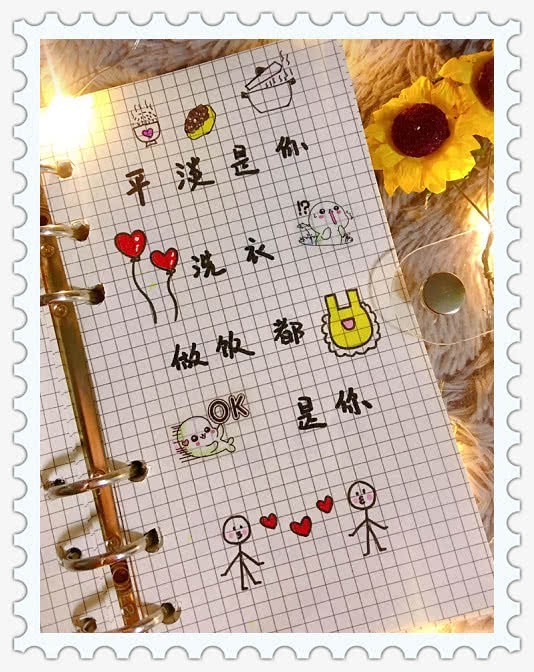 平淡是你
!?
洗衣
做饭都
OK
是你